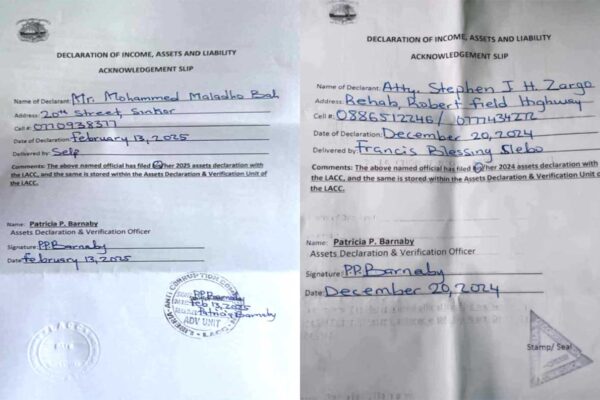 DECLARATION OF INCOME, ASSETS AND LIABILITY
ACKNOWLEDGEMENT SLIP
Name of Declarant: Mr. Mohammed Maladho Bah
Address: 20th Street, Sinkor
Cell #: 0770938377
Date of Declaration: February 13, 2025
Delivered by: Self
Comments: The above named official has filed his/her 2025 assets declaration with
the LACC, and the same is stored within the Assets Declaration & Verification Unit of
the LACC.
Name: Patricia P. Barnaby
Assets Declaration & Verification Officer
Signature: P.P. Barnaby
Date: February 13, 2025
LIBERIA ANTI CORRUPTION
P.P. Barnaby
Feb 13, 2025
Patricia Barnaby
ADV UNIT
LACC
DECLARATION OF INCOME, ASSETS AND LIABILITY
ACKNOWLEDGEMENT SLIP
Name of Declarant: Atty. Stephen J. H. Zargo
Address: Rehab, Robert field Highway
Cell #: 0886512246 / 0777434272
Date of Declaration: December 20, 2024
Delivered by: Francis Blessing Slebo
Comments: The above named official has filed his/her 2024 assets declaration with
the LACC, and the same is stored within the Assets Declaration & Verification Unit of
the LACC.
Name: Patricia P. Barnaby
Assets Declaration & Verification Officer
Signature: P.P. Barnaby
Date: December 20, 2024
Stamp/ Seal